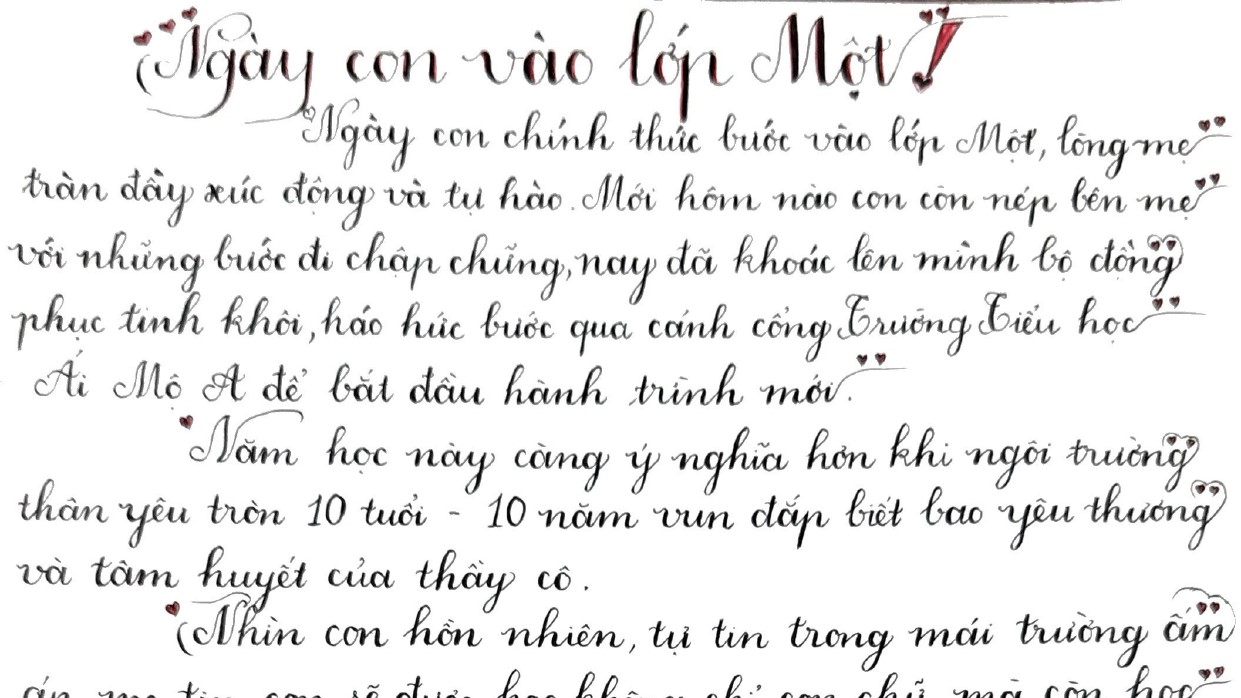 Ngày con vào lớp Một!
Ngày con chính thức bước vào lớp Một, lòng mẹ
tràn đầy xúc động và tự hào. Mới hôm nào con còn nép bên mẹ
với những bước đi chập chững, nay đã khoác lên mình bộ đồng
phục tinh khôi, háo hức bước qua cánh cổng Trường Tiểu học
Ái Mộ A để bắt đầu hành trình mới.
Năm học này càng ý nghĩa hơn khi ngôi trường
thân yêu tròn 10 tuổi - 10 năm vun đắp biết bao yêu thương
và tâm huyết của thầy cô.
Nhìn con hồn nhiên, tự tin trong mái trường ấm
áp, mẹ tin con sẽ được học không chỉ con chữ mà còn học